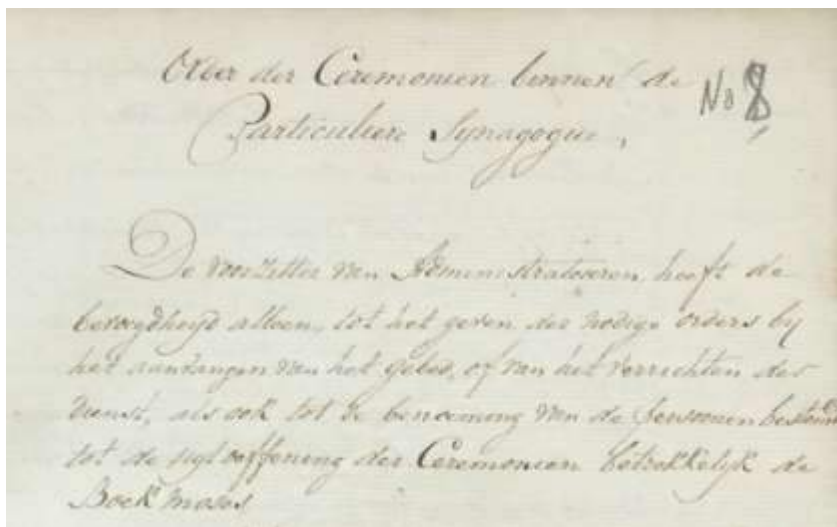 Over der Ceremonien binnen de
No 8
Particuliere Synagogue,
De voorzitter van Administrateuren, heeft de
bevoegdheyd alleen, tot het geven der nodige orders by
het aanvangen van het gebed, of van het verrichten der
dienst, als ook tot de benoeming van de persoonen bestemd
tot de der Ceremonien betrekkelyk de
Boek Moses